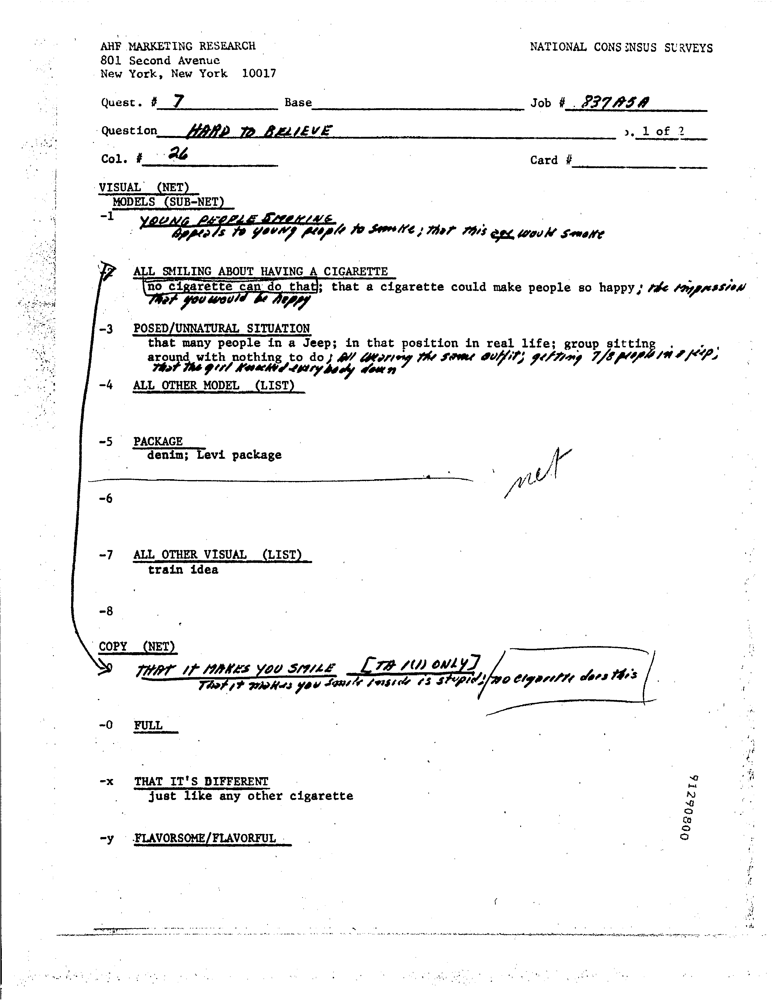 AHF MARKETING RESEARCH
NATIONAL CONSENSUS SURVEYS
801 Second Avenue
New York, New York 10017
Quest. # 7 Base Job # 837A5A
Question HARD TO BELIEVE p. 1 of 2
Col. # 26 Card #
VISUAL (NET)
MODELS (SUB-NET)
-1 YOUNG PEOPLE SMOKING
Appeals to young people to smoke; that this age would smoke
ALL SMILING ABOUT HAVING A CIGARETTE
no cigarette can do that; that a cigarette could make people so happy; the impression
that you would be happy
-3 POSED/UNNATURAL SITUATION
that many people in a Jeep; in that position in real life; group sitting
around with nothing to do; all wearing the same outfit; getting 7/8 people in a jeep;
that the girl knocked everybody down
-4 ALL OTHER MODEL (LIST)
-5 PACKAGE
denim; Levi package
net
-6
-7 ALL OTHER VISUAL (LIST)
train idea
-8
COPY (NET)
-9 THAT IT MAKES YOU SMILE [TA 1(1) ONLY]
That it makes you smile inside is stupid; no cigarette does this
-0 FULL
-x THAT IT'S DIFFERENT
just like any other cigarette
-y FLAVORSOME/FLAVORFUL
91290800